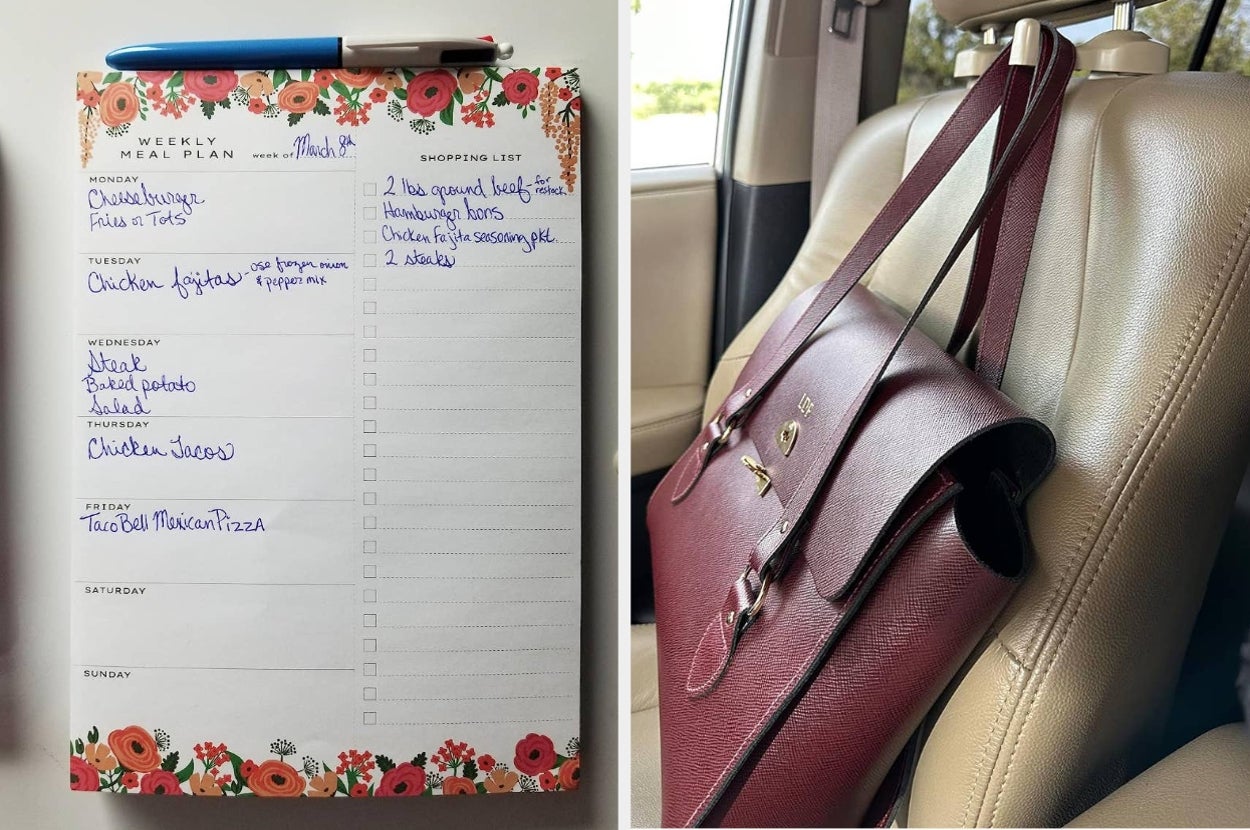 WEEKLY
MEAL PLAN
week of March 8th
MONDAY
Cheeseburger
Fries or Tots
TUESDAY
Chicken fajitas - use frozen onion
& pepper mix
WEDNESDAY
Steak
Baked potato
Salad
THURSDAY
Chicken Tacos
FRIDAY
Taco Bell Mexican Pizza
SATURDAY
SUNDAY
SHOPPING LIST
2 lbs ground beef - for
restock
Hamburger buns
Chicken Fajita seasoning pkt.
2 steaks